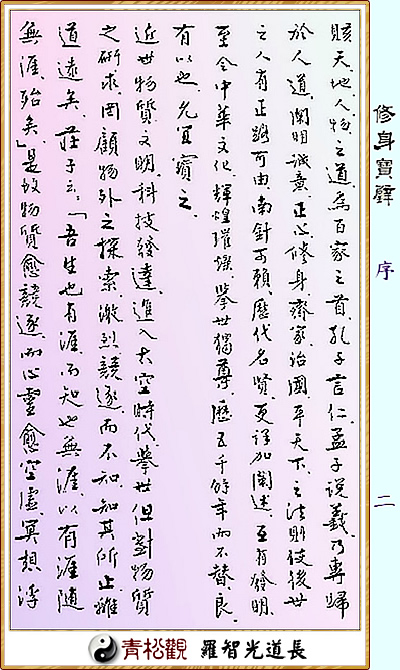 修身寶璧 序 二
賅天、地、人、物、之道、為百家之首、孔子言仁、孟子說義、乃專歸
於人道、闡明誠意、正心、修身、齊家、治國、平天下、之法則、使後世
之人有正路可由、南針可賴、歷代名賢、更詳加闡述、互有發明、
至令中華文化、輝煌璀燦、舉世獨尊、歷五千餘年而不替、良
有以也、允宜寶之、
近世物質文明、科技發達、進入太空時代、舉世但對物質
之研求、罔顧物外之探索、激烈競逐、而不知、知其所止、離
道遠矣、莊子云：「吾生也有涯、而知也無涯、以有涯隨
無涯、殆矣」是故物質愈競逐、而心靈愈空虛、冥想浮
青松觀 羅智光道長